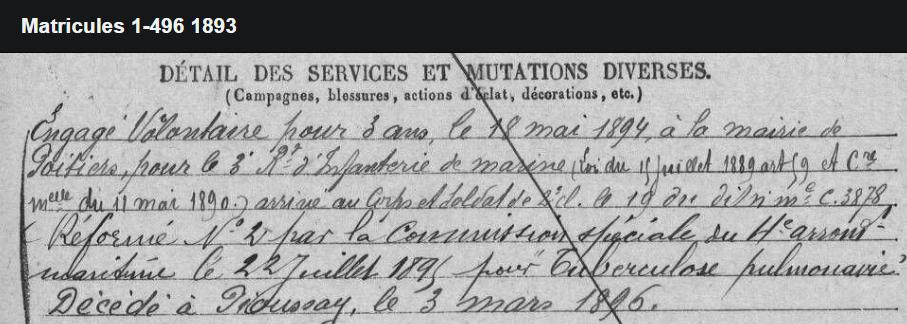 Matricules 1-496 1893
DÉTAIL DES SERVICES ET MUTATIONS DIVERSES.
(Campagnes, blessures, actions d'éclat, décorations, etc.)
Engagé Volontaire pour 3 ans, le 18 mai 1894, à la mairie de
Poitiers, pour le 3e Rgt d'Infanterie de marine (Loi du 15 juillet 1889 art 59 et Cre
melle du 11 mai 1890.) arrivé au Corps et soldat de 2e cl. le 19 du dit n° mle C. 3878
Réformé N° 2 par la Commission spéciale du 4e arrondt
maritime le 22 Juillet 1895 pour Tuberculose pulmonaire.
Décédé à Pioussay, le 3 mars 1896.